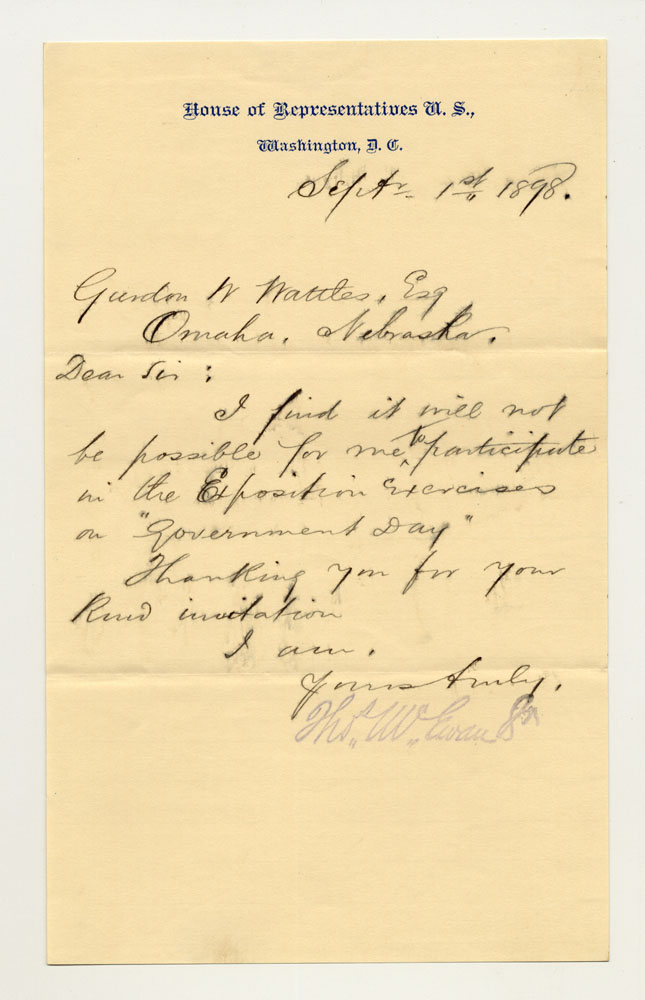 House of Representatives U. S.,
Washington, D. C.
Septr 1st 1898.
Gurdon W Wattles, Esq
Omaha, Nebraska.
Dear Sir:
I find it will not
be possible for me to participate
in the Exposition Exercises
on "Government Day"
Thanking you for your
kind invitation
I am.
Yours truly,
Thos. McEwan Jr